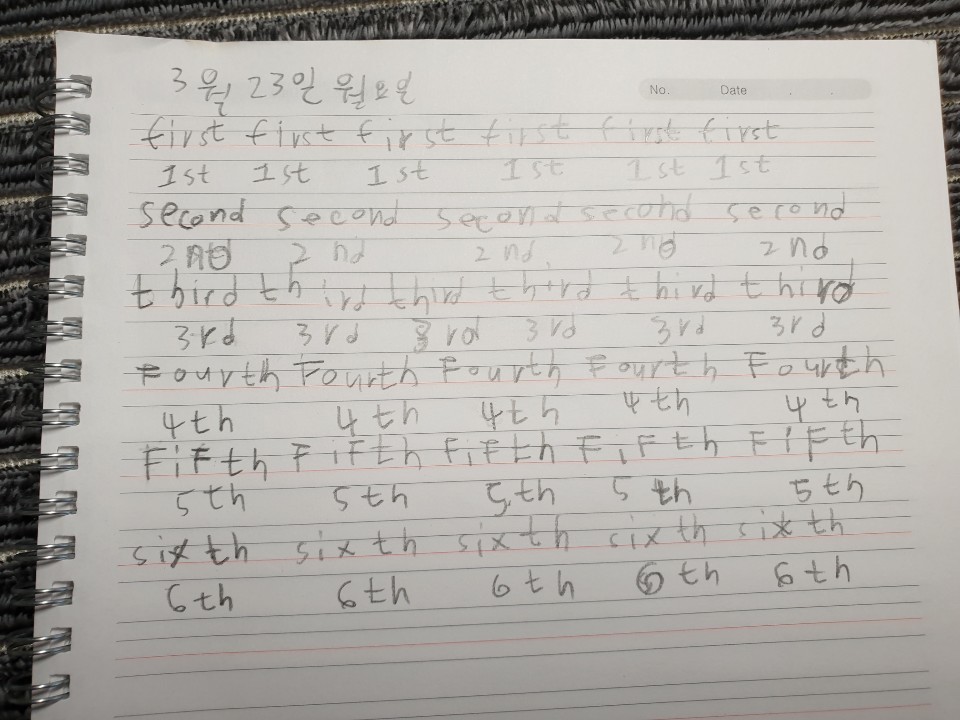 3월 23일 월요일
No. Date . .
first first first first first first
1st 1st 1st 1st 1st 1st
second second second second second
2nd 2nd 2nd 2nd 2nd
third third third third third third
3rd 3rd 3rd 3rd 3rd 3rd
Fourth Fourth Fourth Fourth Fourth
4th 4th 4th 4th 4th
FiFth FiFth FifTh FiFth FiFth
5th 5th 5th 5th 5th
sixth sixth sixth sixth sixth
6th 6th 6th 6th 6th